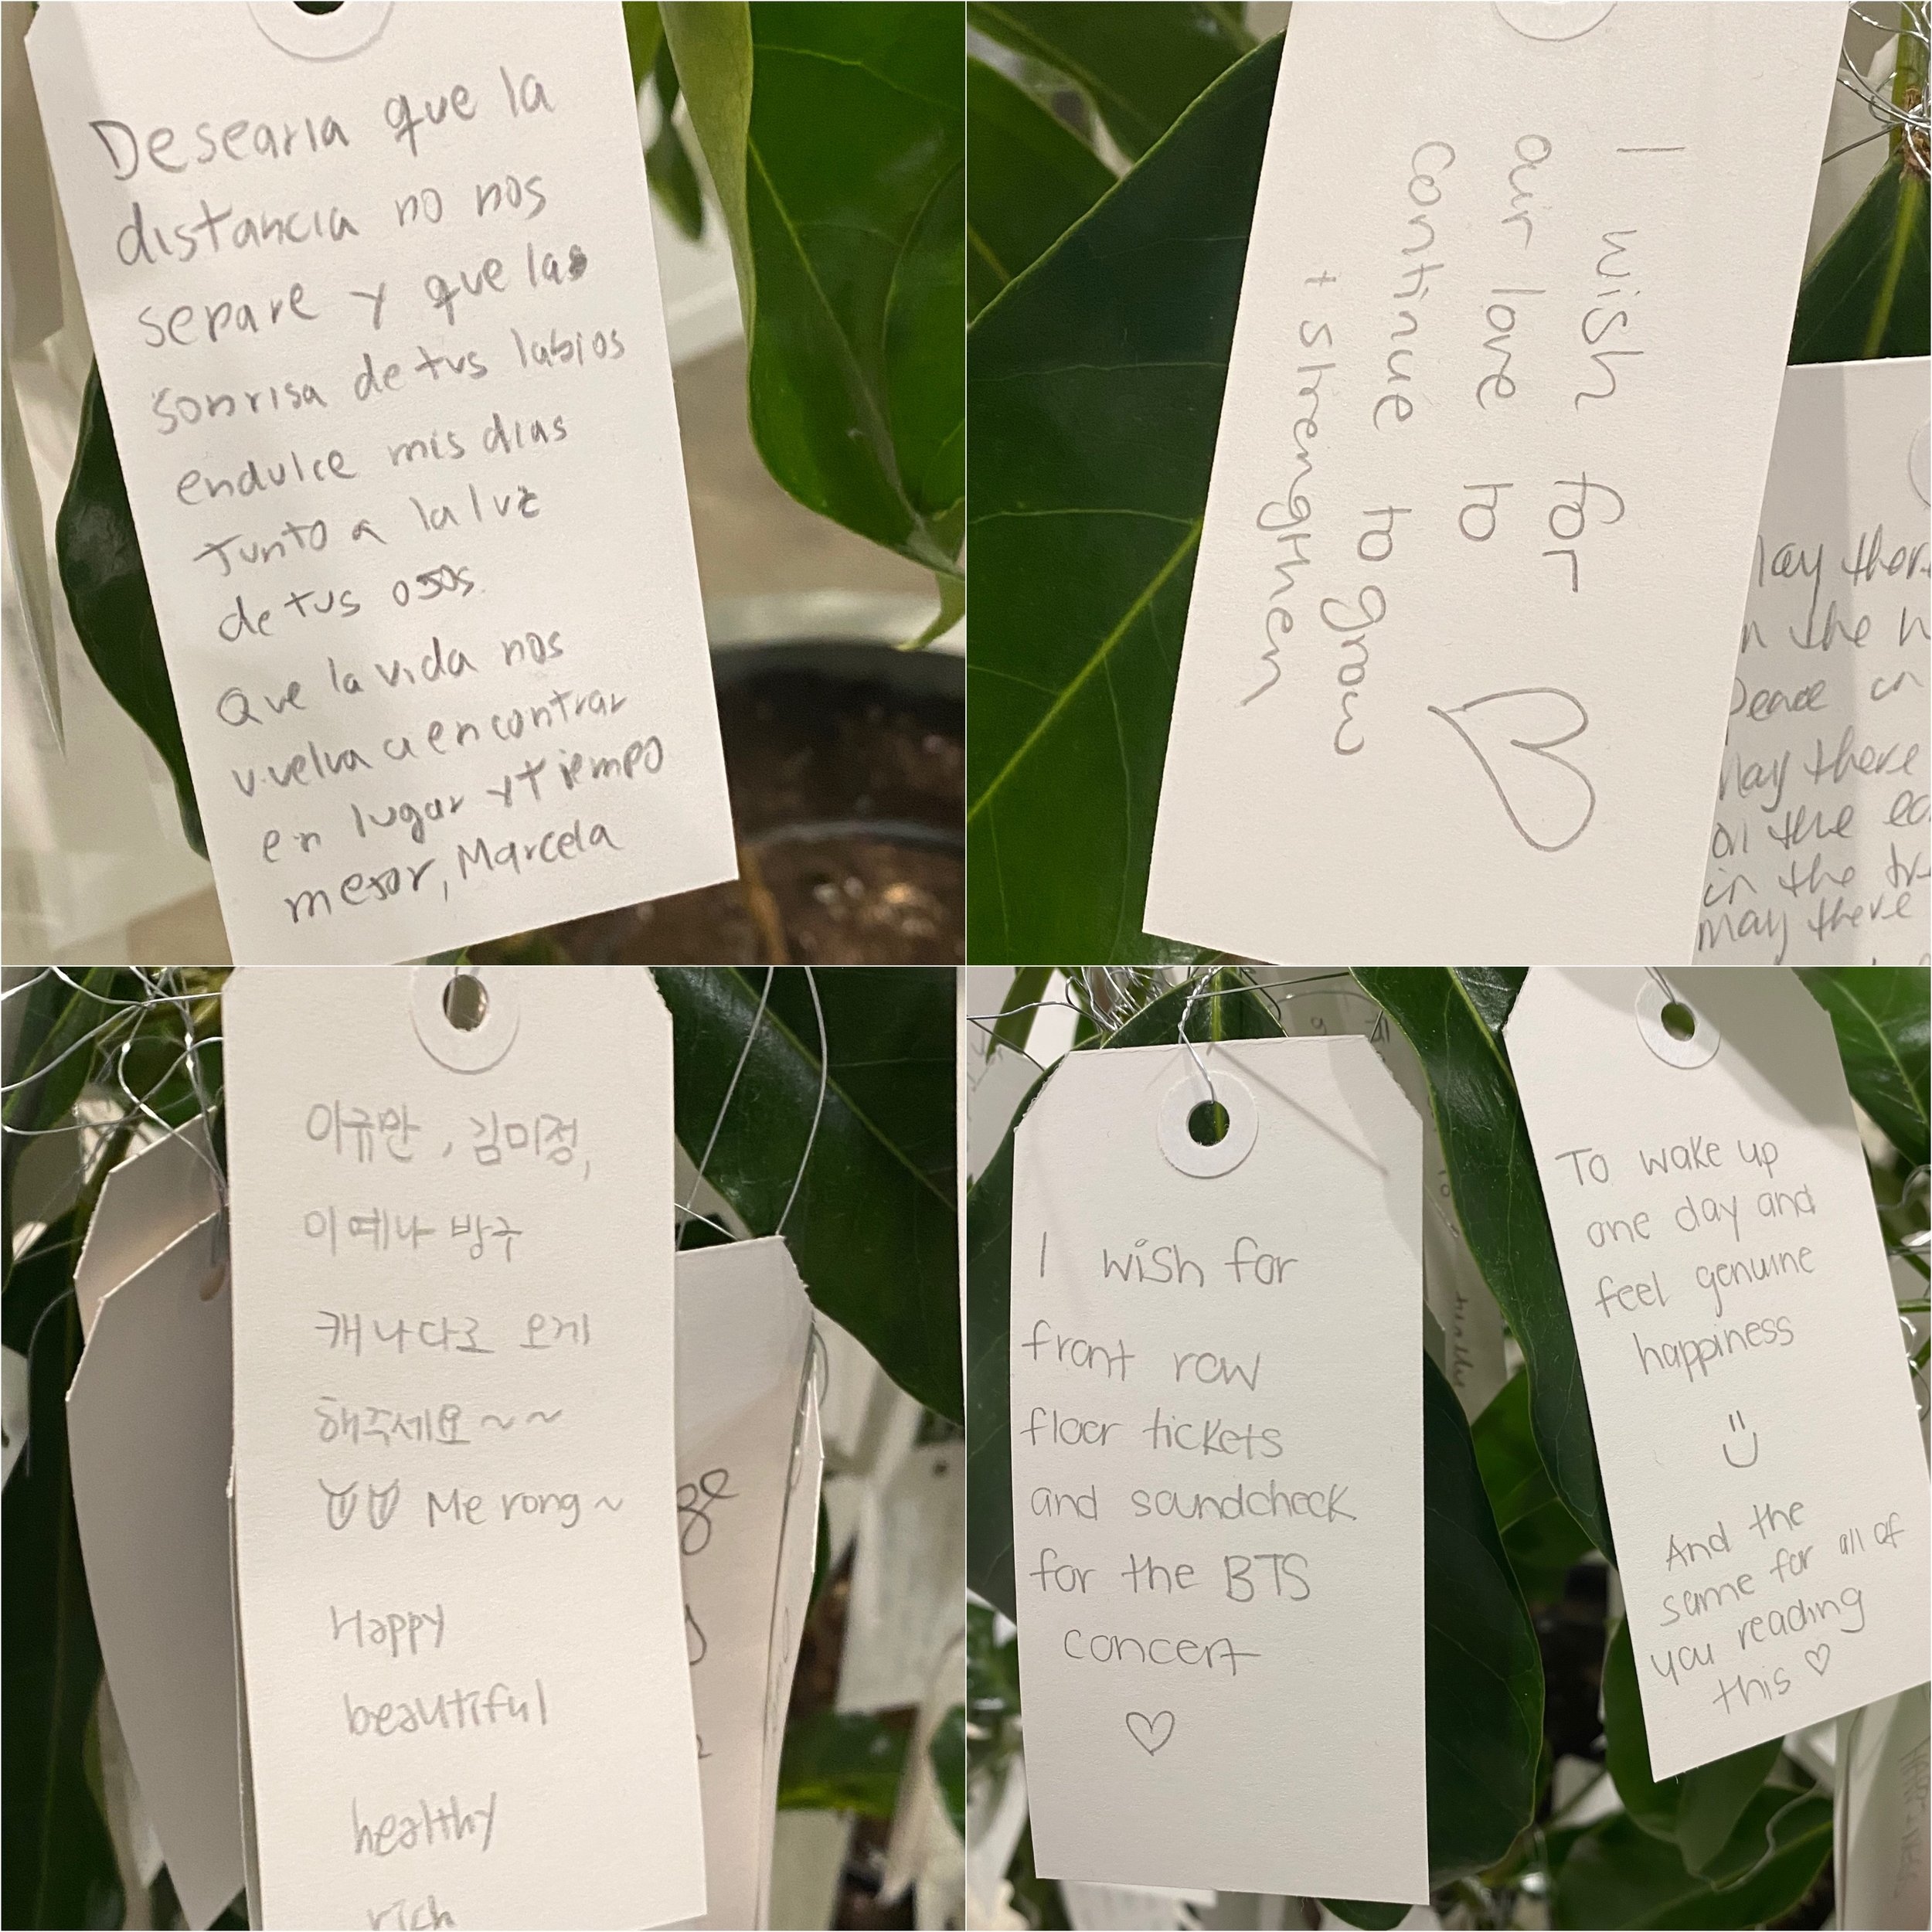 Desearia que la
distancia no nos
separe y que la
sonrisa de tus labios
endulce mis dias
Junto a la luz
de tus osos.
Que la vida nos
vuelva a encontrar
en lugar y tiempo
mejor, Marcela
I wish for
our love to
continue to grow
+ strengthen
lay ther
n the
peace on
May there
on the ea
in the tr
may there
이규만, 김미정,
이예나 방구
캐나다로 오게
해주세요~~
Me rong~
Happy
beautiful
healthy
rich
ge
I wish for
front row
floor tickets
and soundcheck
for the BTS
concert
To wake up
one day and
feel genuine
happiness
And the
same for all of
you reading
this